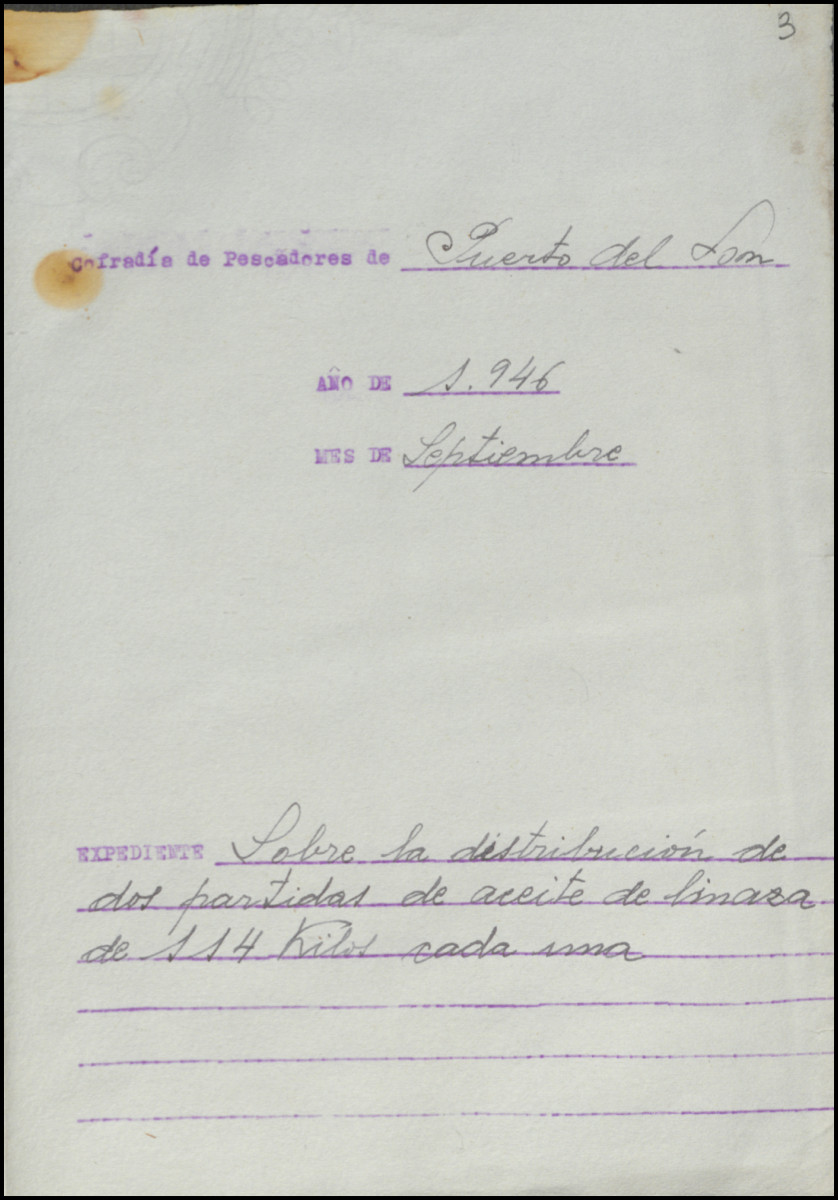 3
Cofradía de Pescadores de Puerto del Son
AÑO DE 1.946
MES DE Septiembre
EXPEDIENTE Sobre la distribución de
dos partidas de aceite de linaza
de 114 Kilos cada una